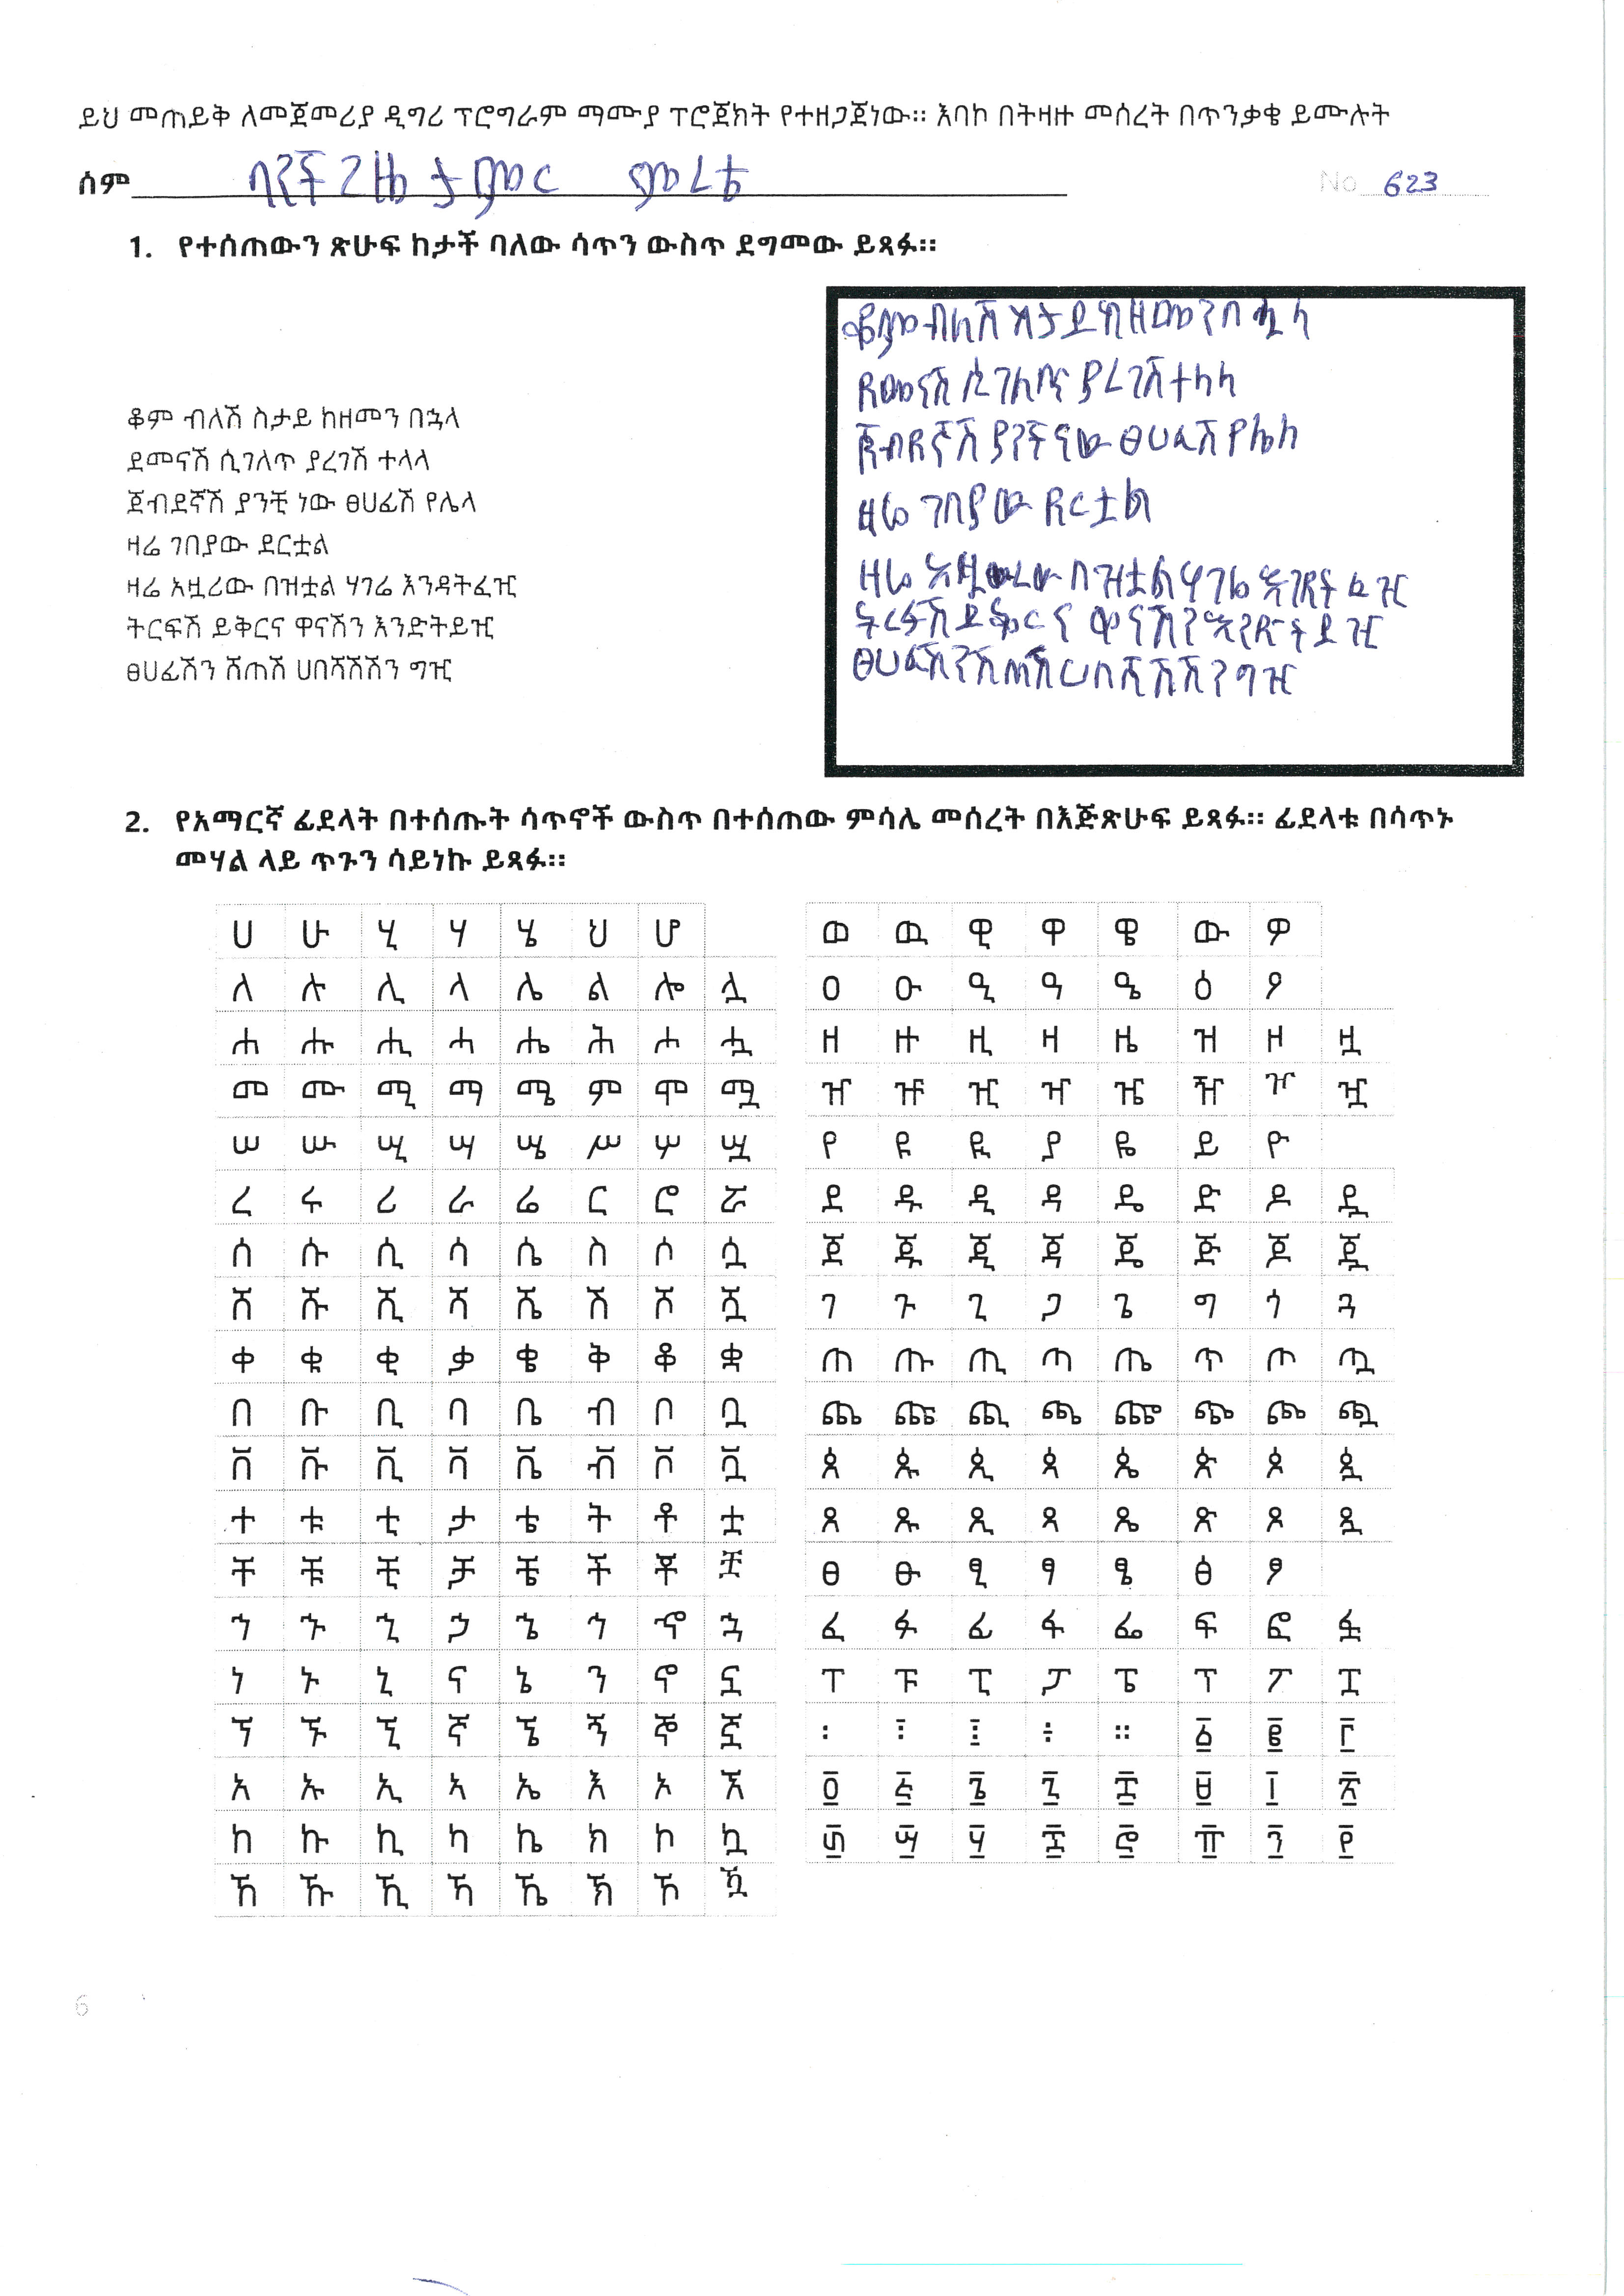 ይህ መጠይቅ ለመጀመሪያ ዲግሪ ፕሮግራም ማሙያ ፕሮጀክት የተዘጋጀነው። እባኮ በትዛዙ መሰረት በጥንቃቄ ይሙሉት
ሰም ታምር ምረቴ No 623
1. የተሰጠውን ጽሁፍ ከታች ባለው ሳጥን ውስጥ ደግመው ይጻፉ።
ቆም ብለሽ ስታይ ከዘመን በኋላ
ደመናሽ ሲገለጥ ያረገሽ ተላላ
ጀብደኛሽ ያንቺ ነው ፀሀፊሽ የሌላ
ዛሬ ገበያው ደርቷል
ዛሬ አዟሪው በዝቷል ሃገሬ እንዳትፈዢ
ትርፍሽ ይቅርና ዋናሽን እንድትይዢ
ፀሀፊሽን ሸጠሽ ሀበሻሽሽን ግዢ
ቆም ብለሽ ስታይ ከዘመን በኋላ
ደመናሽ ሲገለጥ ያረገሽ ተላላ
ጀብደኛሽ ያንች ነው ፀሀፊሽ የሌላ
ዛሬ ገበያው ደርቷል
ዛሬ አዟሪው በዝቷል ሃገሬ እንዳትፈዢ
ትርፍሽ ይቅርና ዋናሽን እንድትይዢ
ፀሀፊሽን ሸጠሽ ሀበሻሽሽን ግዢ
2. የአማርኛ ፊደላት በተሰጡት ሳጥኖች ውስጥ በተሰጠው ምሳሌ መሰረት በእጅጽሁፍ ይጻፉ። ፊደላቱ በሳጥኑ
መሃል ላይ ጥጉን ሳይነኩ ይጻፉ።
ሀ ሁ ሂ ሃ ሄ ህ ሆ
ለ ሉ ሊ ላ ሌ ል ሎ ሏ
ሐ ሑ ሒ ሓ ሔ ሕ ሖ ሗ
መ ሙ ሚ ማ ሜ ም ሞ ሟ
ሠ ሡ ሢ ሣ ሤ ሥ ሦ ሧ
ረ ሩ ሪ ራ ሬ ር ሮ ሯ
ሰ ሱ ሲ ሳ ሴ ስ ሶ ሷ
ሸ ሹ ሺ ሻ ሼ ሽ ሾ ሿ
ቀ ቁ ቂ ቃ ቄ ቅ ቆ ቋ
በ ቡ ቢ ባ ቤ ብ ቦ ቧ
ቨ ቩ ቪ ቫ ቬ ቭ ቮ ቯ
ተ ቱ ቲ ታ ቴ ት ቶ ቷ
ቸ ቹ ቺ ቻ ቼ ች ቾ ቿ
ኀ ኁ ኂ ኃ ኄ ኅ ኆ ኋ
ነ ኑ ኒ ና ኔ ን ኖ ኗ
ኘ ኙ ኚ ኛ ኜ ኝ ኞ ኟ
አ ኡ ኢ ኣ ኤ እ ኦ ኧ
ከ ኩ ኪ ካ ኬ ክ ኮ ኳ
ኸ ኹ ኺ ኻ ኼ ኽ ኾ ዃ
ወ ዉ ዊ ዋ ዌ ው ዎ
ዐ ዑ ዒ ዓ ዔ ዕ ዖ
ዘ ዙ ዚ ዛ ዜ ዝ ዞ ዟ
ዠ ዡ ዢ ዣ ዤ ዥ ዦ ዧ
የ ዩ ዪ ያ ዬ ይ ዮ
ደ ዱ ዲ ዳ ዴ ድ ዶ ዷ
ጀ ጁ ጂ ጃ ጄ ጅ ጆ ጇ
ገ ጉ ጊ ጋ ጌ ግ ጎ ጓ
ጠ ጡ ጢ ጣ ጤ ጥ ጦ ጧ
ጨ ጩ ጪ ጫ ጬ ጭ ጮ ጯ
ጰ ጱ ጲ ጳ ጴ ጵ ጶ ጷ
ጸ ጹ ጺ ጻ ጼ ጽ ጾ ጿ
ፀ ፁ ፂ ፃ ፄ ፅ ፆ
ፈ ፉ ፊ ፋ ፌ ፍ ፎ ፏ
ፐ ፑ ፒ ፓ ፔ ፕ ፖ ፗ
፡ ፣ ፤ ÷ ። ፩ ፪ ፫
፬ ፭ ፮ ፯ ፰ ፱ ፲ ፳
፴ ፵ ፶ ፷ ፸ ፹ ፺ ፻
6